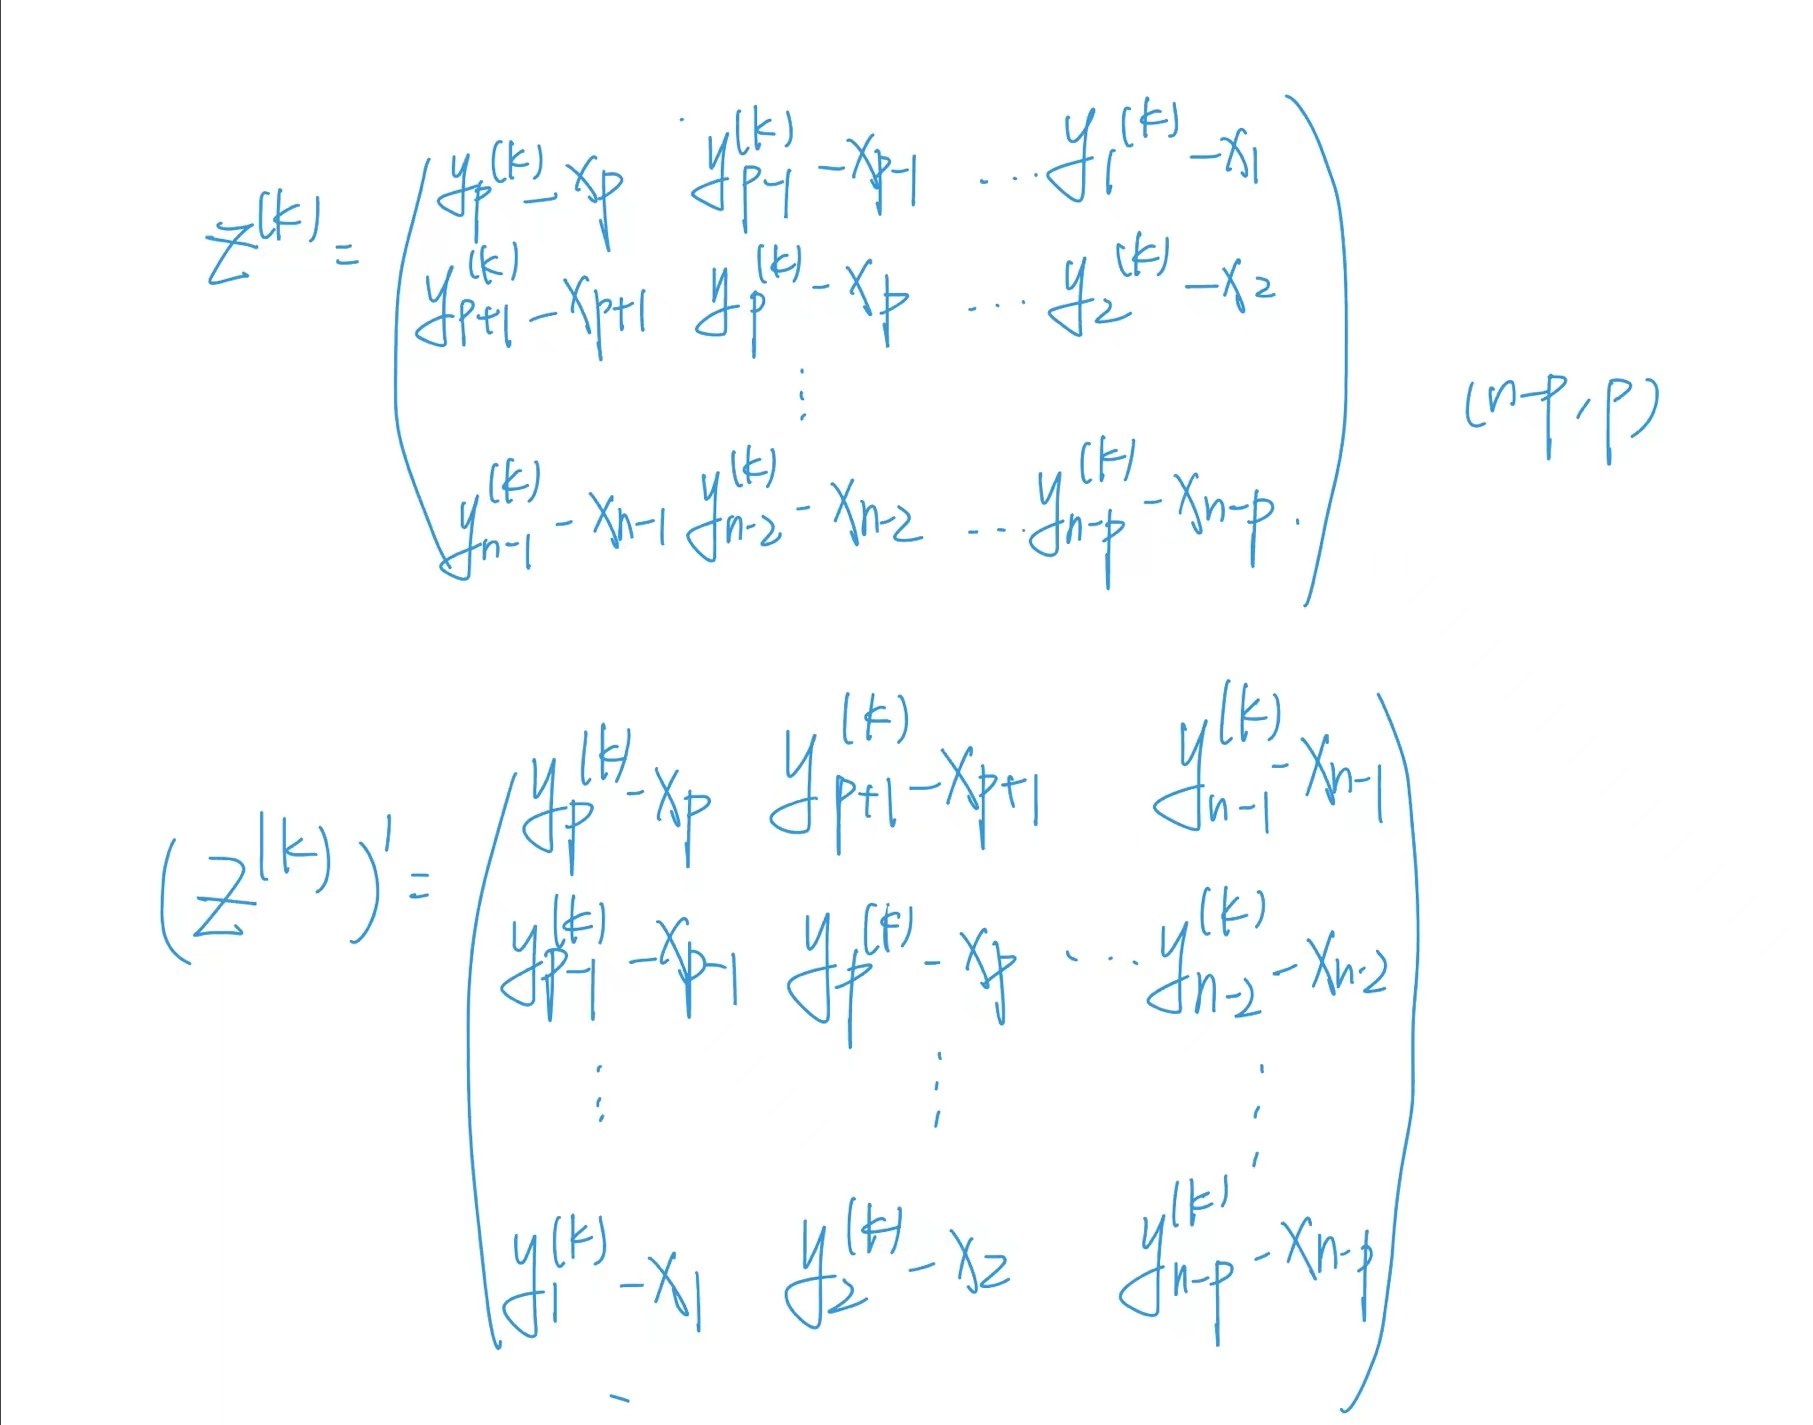 $Z^{(k)} = \begin{pmatrix} y_p^{(k)} - x_p & y_{p-1}^{(k)} - x_{p-1} & \cdots & y_1^{(k)} - x_1 \\ y_{p+1}^{(k)} - x_{p+1} & y_p^{(k)} - x_p & \cdots & y_2^{(k)} - x_2 \\ & \vdots & & \\ y_{n-1}^{(k)} - x_{n-1} & y_{n-2}^{(k)} - x_{n-2} & \cdots & y_{n-p}^{(k)} - x_{n-p} \end{pmatrix} \quad (n-p, p)$
$(Z^{(k)})' = \begin{pmatrix} y_p^{(k)} - x_p & y_{p+1}^{(k)} - x_{p+1} & & y_{n-1}^{(k)} - x_{n-1} \\ y_{p-1}^{(k)} - x_{p-1} & y_p^{(k)} - x_p & \cdots & y_{n-2}^{(k)} - x_{n-2} \\ \vdots & \vdots & & \vdots \\ y_1^{(k)} - x_1 & y_2^{(k)} - x_2 & & y_{n-p}^{(k)} - x_{n-p} \end{pmatrix}$